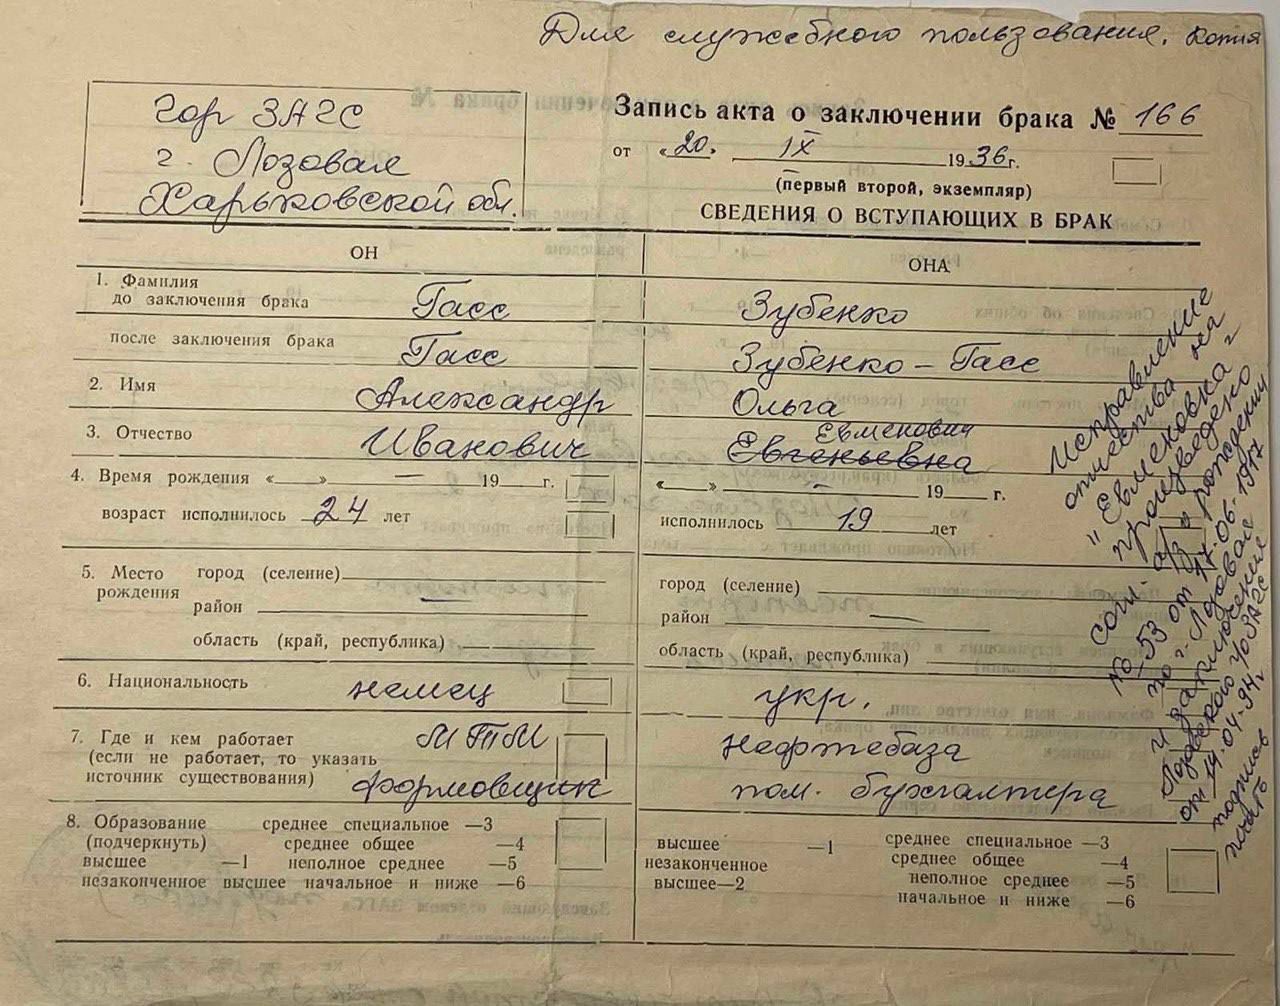 Для служебного пользования. Копия
гор ЗАГС
г. Лозовая
Харьковской обл.
Запись акта о заключении брака № 166
от «20» IX 1936г.
(первый второй, экземпляр)
СВЕДЕНИЯ О ВСТУПАЮЩИХ В БРАК
ОН
ОНА
1. Фамилия
до заключения брака Гасс Зубенко
после заключения брака Гасс Зубенко-Гасс
2. Имя Александр Ольга
Евменович
3. Отчество Иванович Евгеньевна
4. Время рождения «  » — 19 г. «  » - 19 г.
возраст исполнилось 24 лет исполнилось 19 лет
5. Место рождения город (селение) город (селение)
район — район —
область (край, республика) область (край, республика)
6. Национальность немец укр.
7. Где и кем работает МТМ Нефтебаза
(если не работает, то указать
источник существования) формовщик пом. бухгалтера
8. Образование среднее специальное —3 высшее —1 среднее специальное —3
(подчеркнуть) среднее общее —4 незаконченное среднее общее —4
высшее —1 неполное среднее —5 высшее—2 неполное среднее —5
незаконченное высшее начальное и ниже —6 начальное и ниже —6
Исправление
отчества на
"Евменовка"
произведено
согл. а/з о рождении
№ 53 от 17.06.1917
по г. Лозовая
и заключения
Лозовского ЗАГС
от 14.04.94г.
подпись
печать